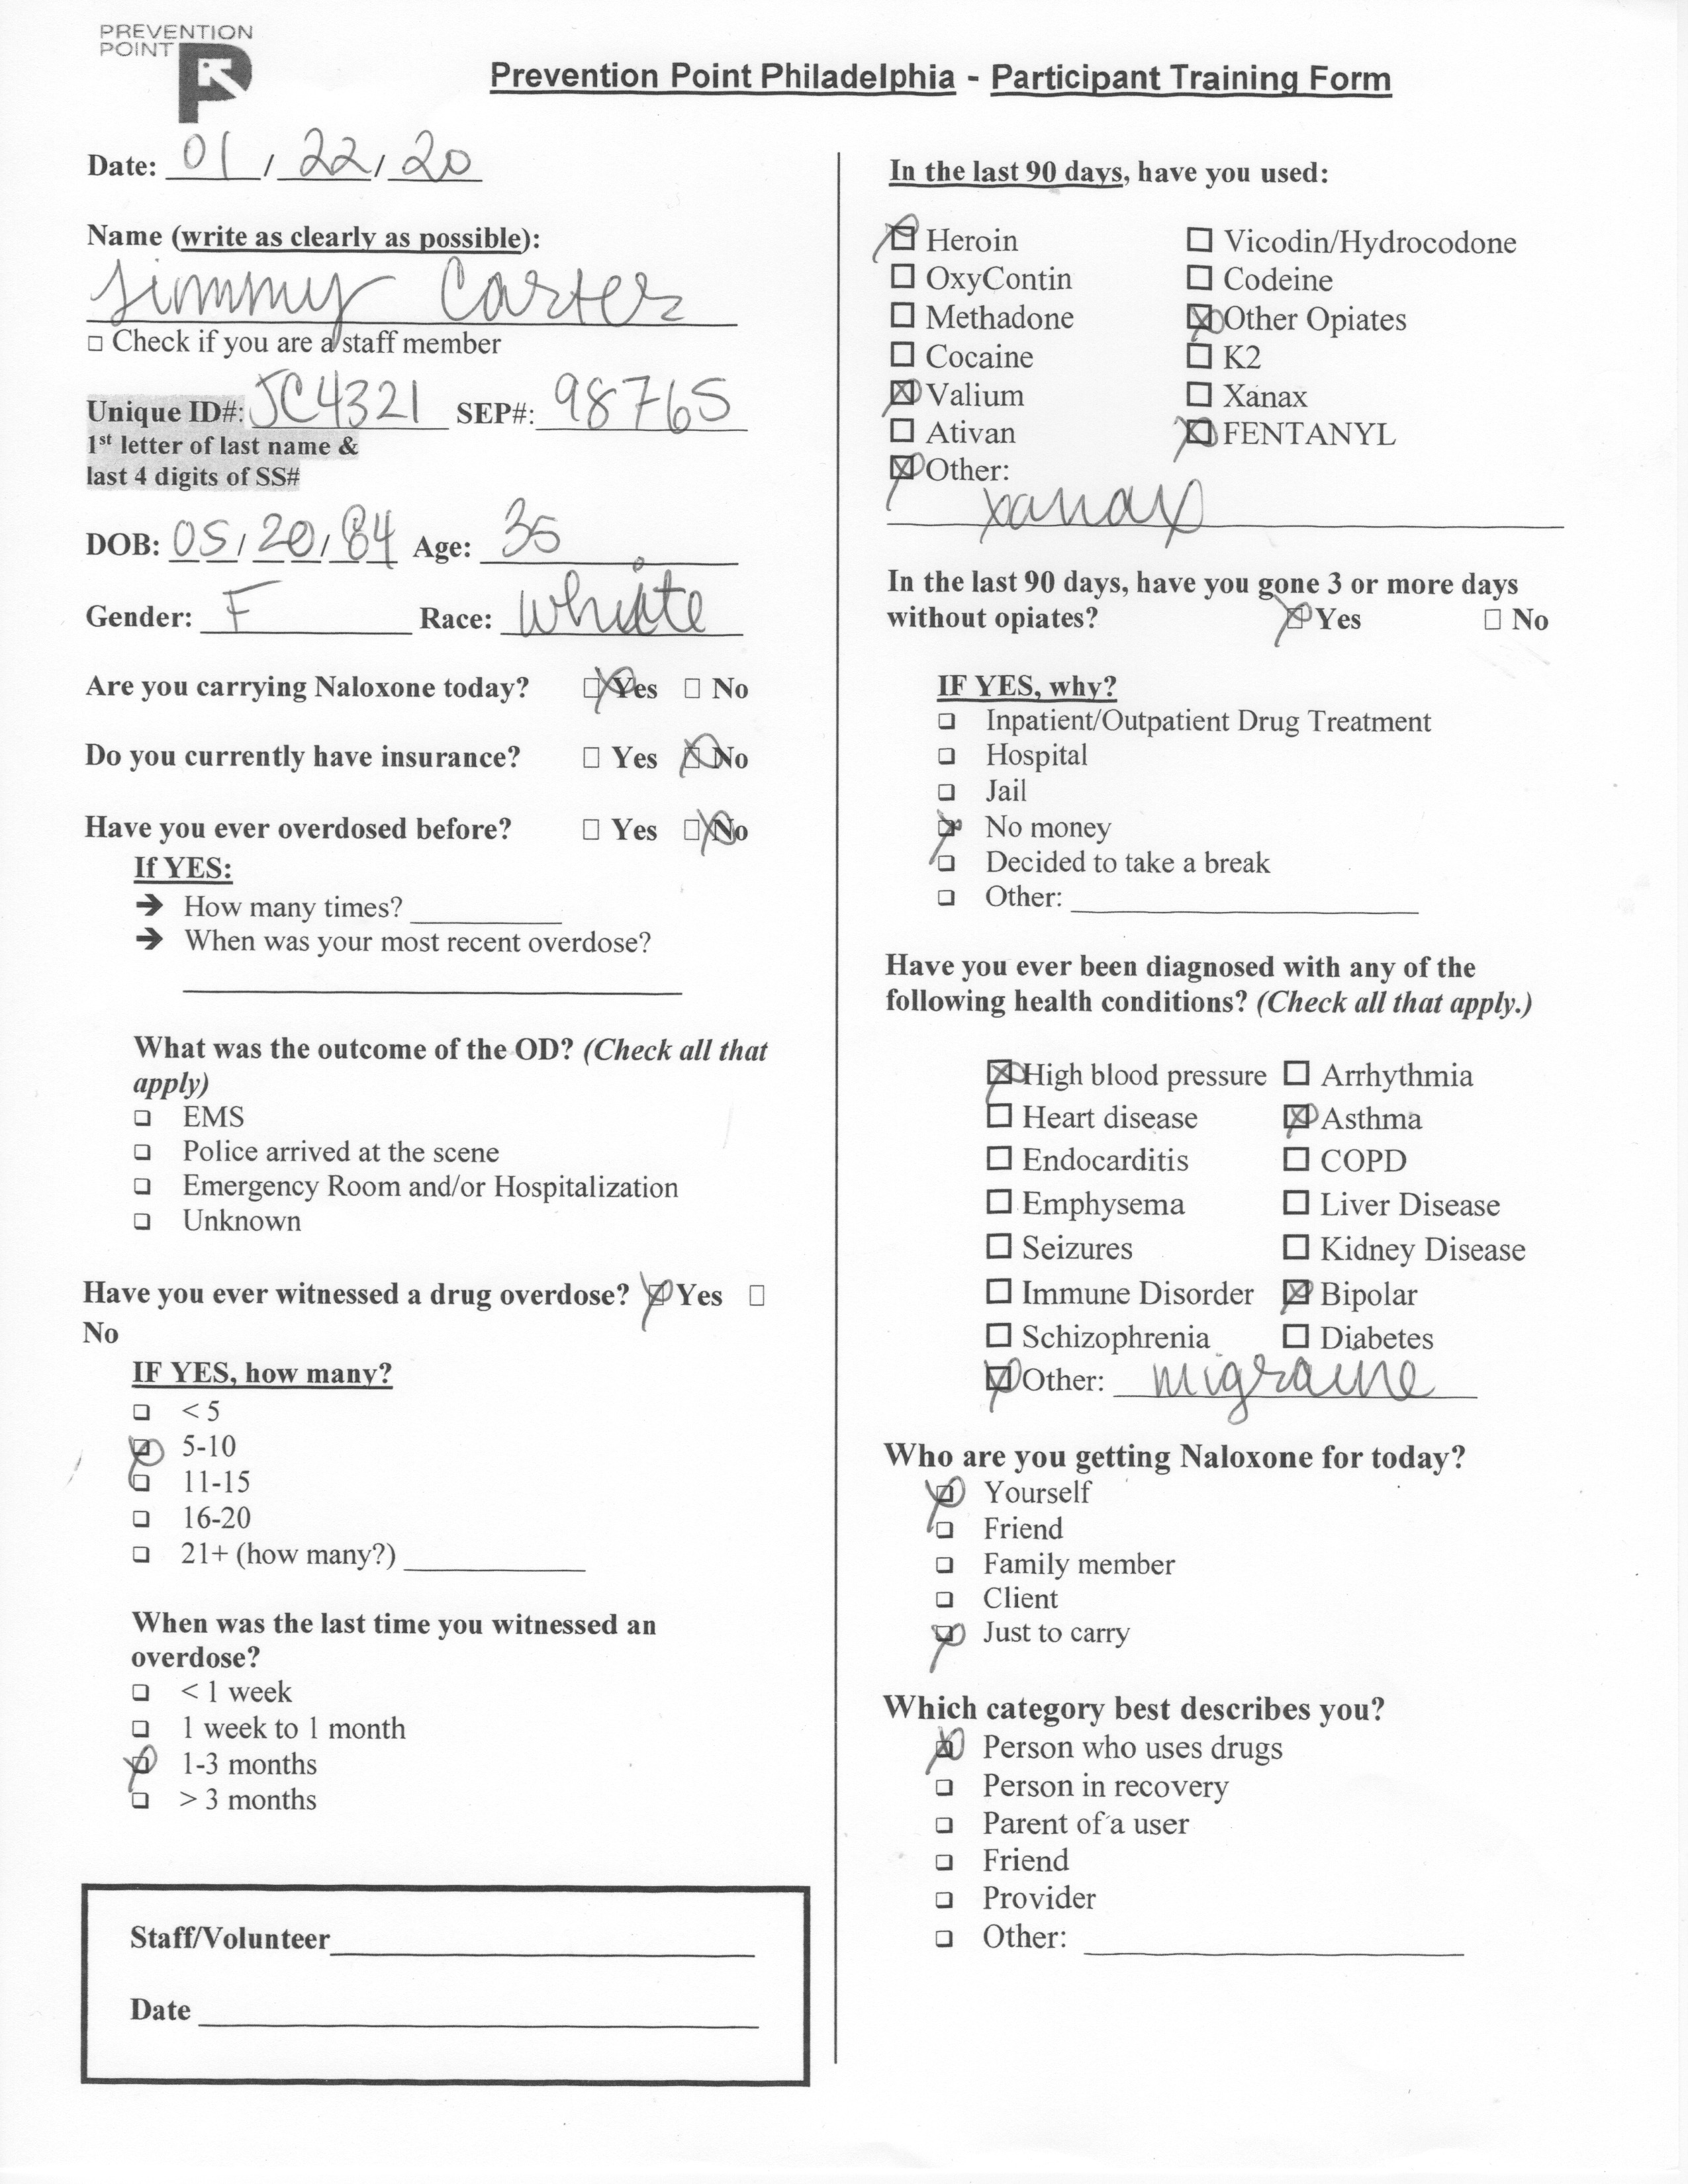 PREVENTION
POINT
Prevention Point Philadelphia - Participant Training Form
Date: 01 / 22 / 20
Name (write as clearly as possible):
Jimmy Carter
□ Check if you are a staff member
Unique ID#: JC4321 SEP#: 98765
1st letter of last name &
last 4 digits of SS#
DOB: 05 / 20 / 84 Age: 35
Gender: F Race: White
Are you carrying Naloxone today? ☒ Yes □ No
Do you currently have insurance? □ Yes ☒ No
Have you ever overdosed before? □ Yes ☒ No
If YES:
➔ How many times? ________
➔ When was your most recent overdose?
What was the outcome of the OD? (Check all that
apply)
□ EMS
□ Police arrived at the scene
□ Emergency Room and/or Hospitalization
□ Unknown
Have you ever witnessed a drug overdose? ☒ Yes □
No
IF YES, how many?
□ < 5
☒ 5-10
□ 11-15
□ 16-20
□ 21+ (how many?) ________
When was the last time you witnessed an
overdose?
□ < 1 week
□ 1 week to 1 month
☒ 1-3 months
□ > 3 months
Staff/Volunteer ________
Date ________
In the last 90 days, have you used:
☒ Heroin □ Vicodin/Hydrocodone
□ OxyContin □ Codeine
□ Methadone ☒ Other Opiates
□ Cocaine □ K2
☒ Valium □ Xanax
□ Ativan ☒ FENTANYL
☒ Other:
xanax
In the last 90 days, have you gone 3 or more days
without opiates? ☒ Yes □ No
IF YES, why?
□ Inpatient/Outpatient Drug Treatment
□ Hospital
□ Jail
☒ No money
□ Decided to take a break
□ Other: ________
Have you ever been diagnosed with any of the
following health conditions? (Check all that apply.)
☒ High blood pressure □ Arrhythmia
□ Heart disease ☒ Asthma
□ Endocarditis □ COPD
□ Emphysema □ Liver Disease
□ Seizures □ Kidney Disease
□ Immune Disorder ☒ Bipolar
□ Schizophrenia □ Diabetes
☒ Other: migraine
Who are you getting Naloxone for today?
☒ Yourself
□ Friend
□ Family member
□ Client
☒ Just to carry
Which category best describes you?
☒ Person who uses drugs
□ Person in recovery
□ Parent of a user
□ Friend
□ Provider
□ Other: ________